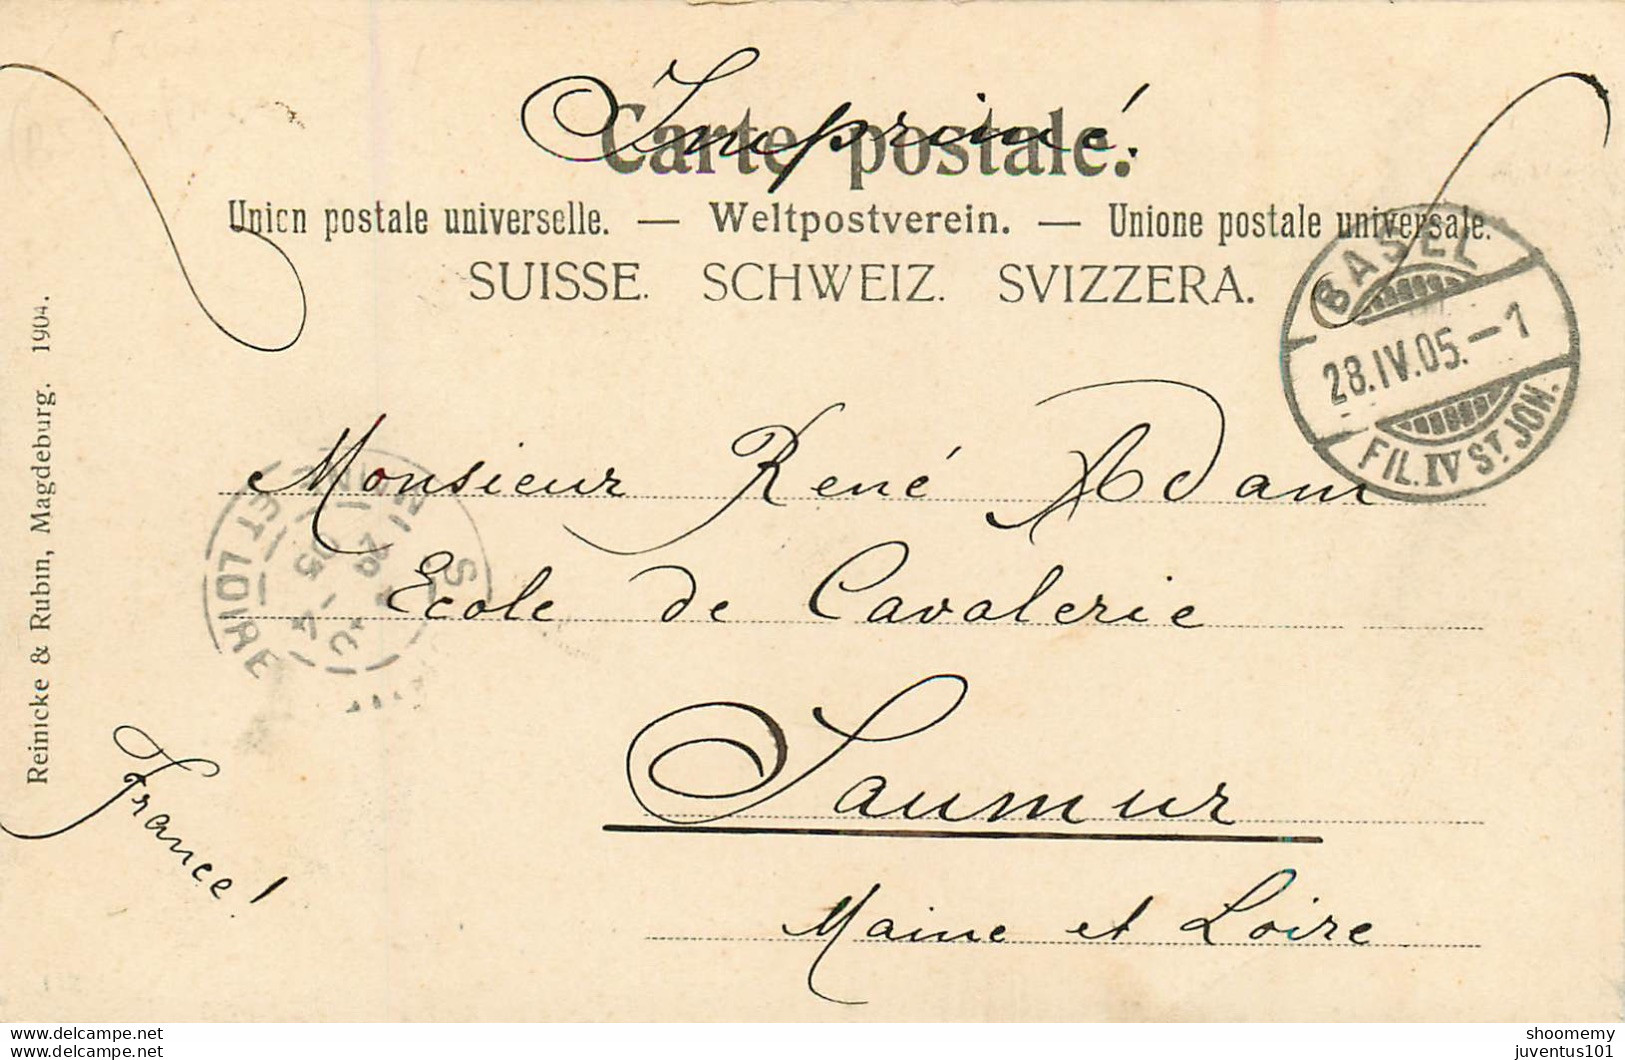 Imprimé.
Carte postale.
Union postale universelle. — Weltpostverein. — Unione postale universale.
SUISSE. SCHWEIZ. SVIZZERA.
BASEL
28.IV.05.–1
FIL. IV ST. JOH.
Reinicke & Rubin, Magdeburg. 1904.
Monsieur René Adam
Ecole de Cavalerie
Saumur
Maine et Loire
France!
ET LOIRE
05
delcampe.net
shoomemy
juventus101